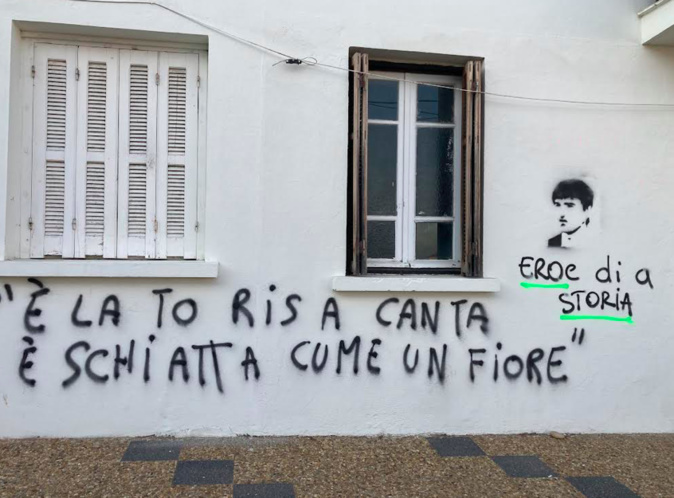 "È LA TO RIS A CANTA
È SCHIATTA CUME UN FIORE"
EROe di a
STORIA